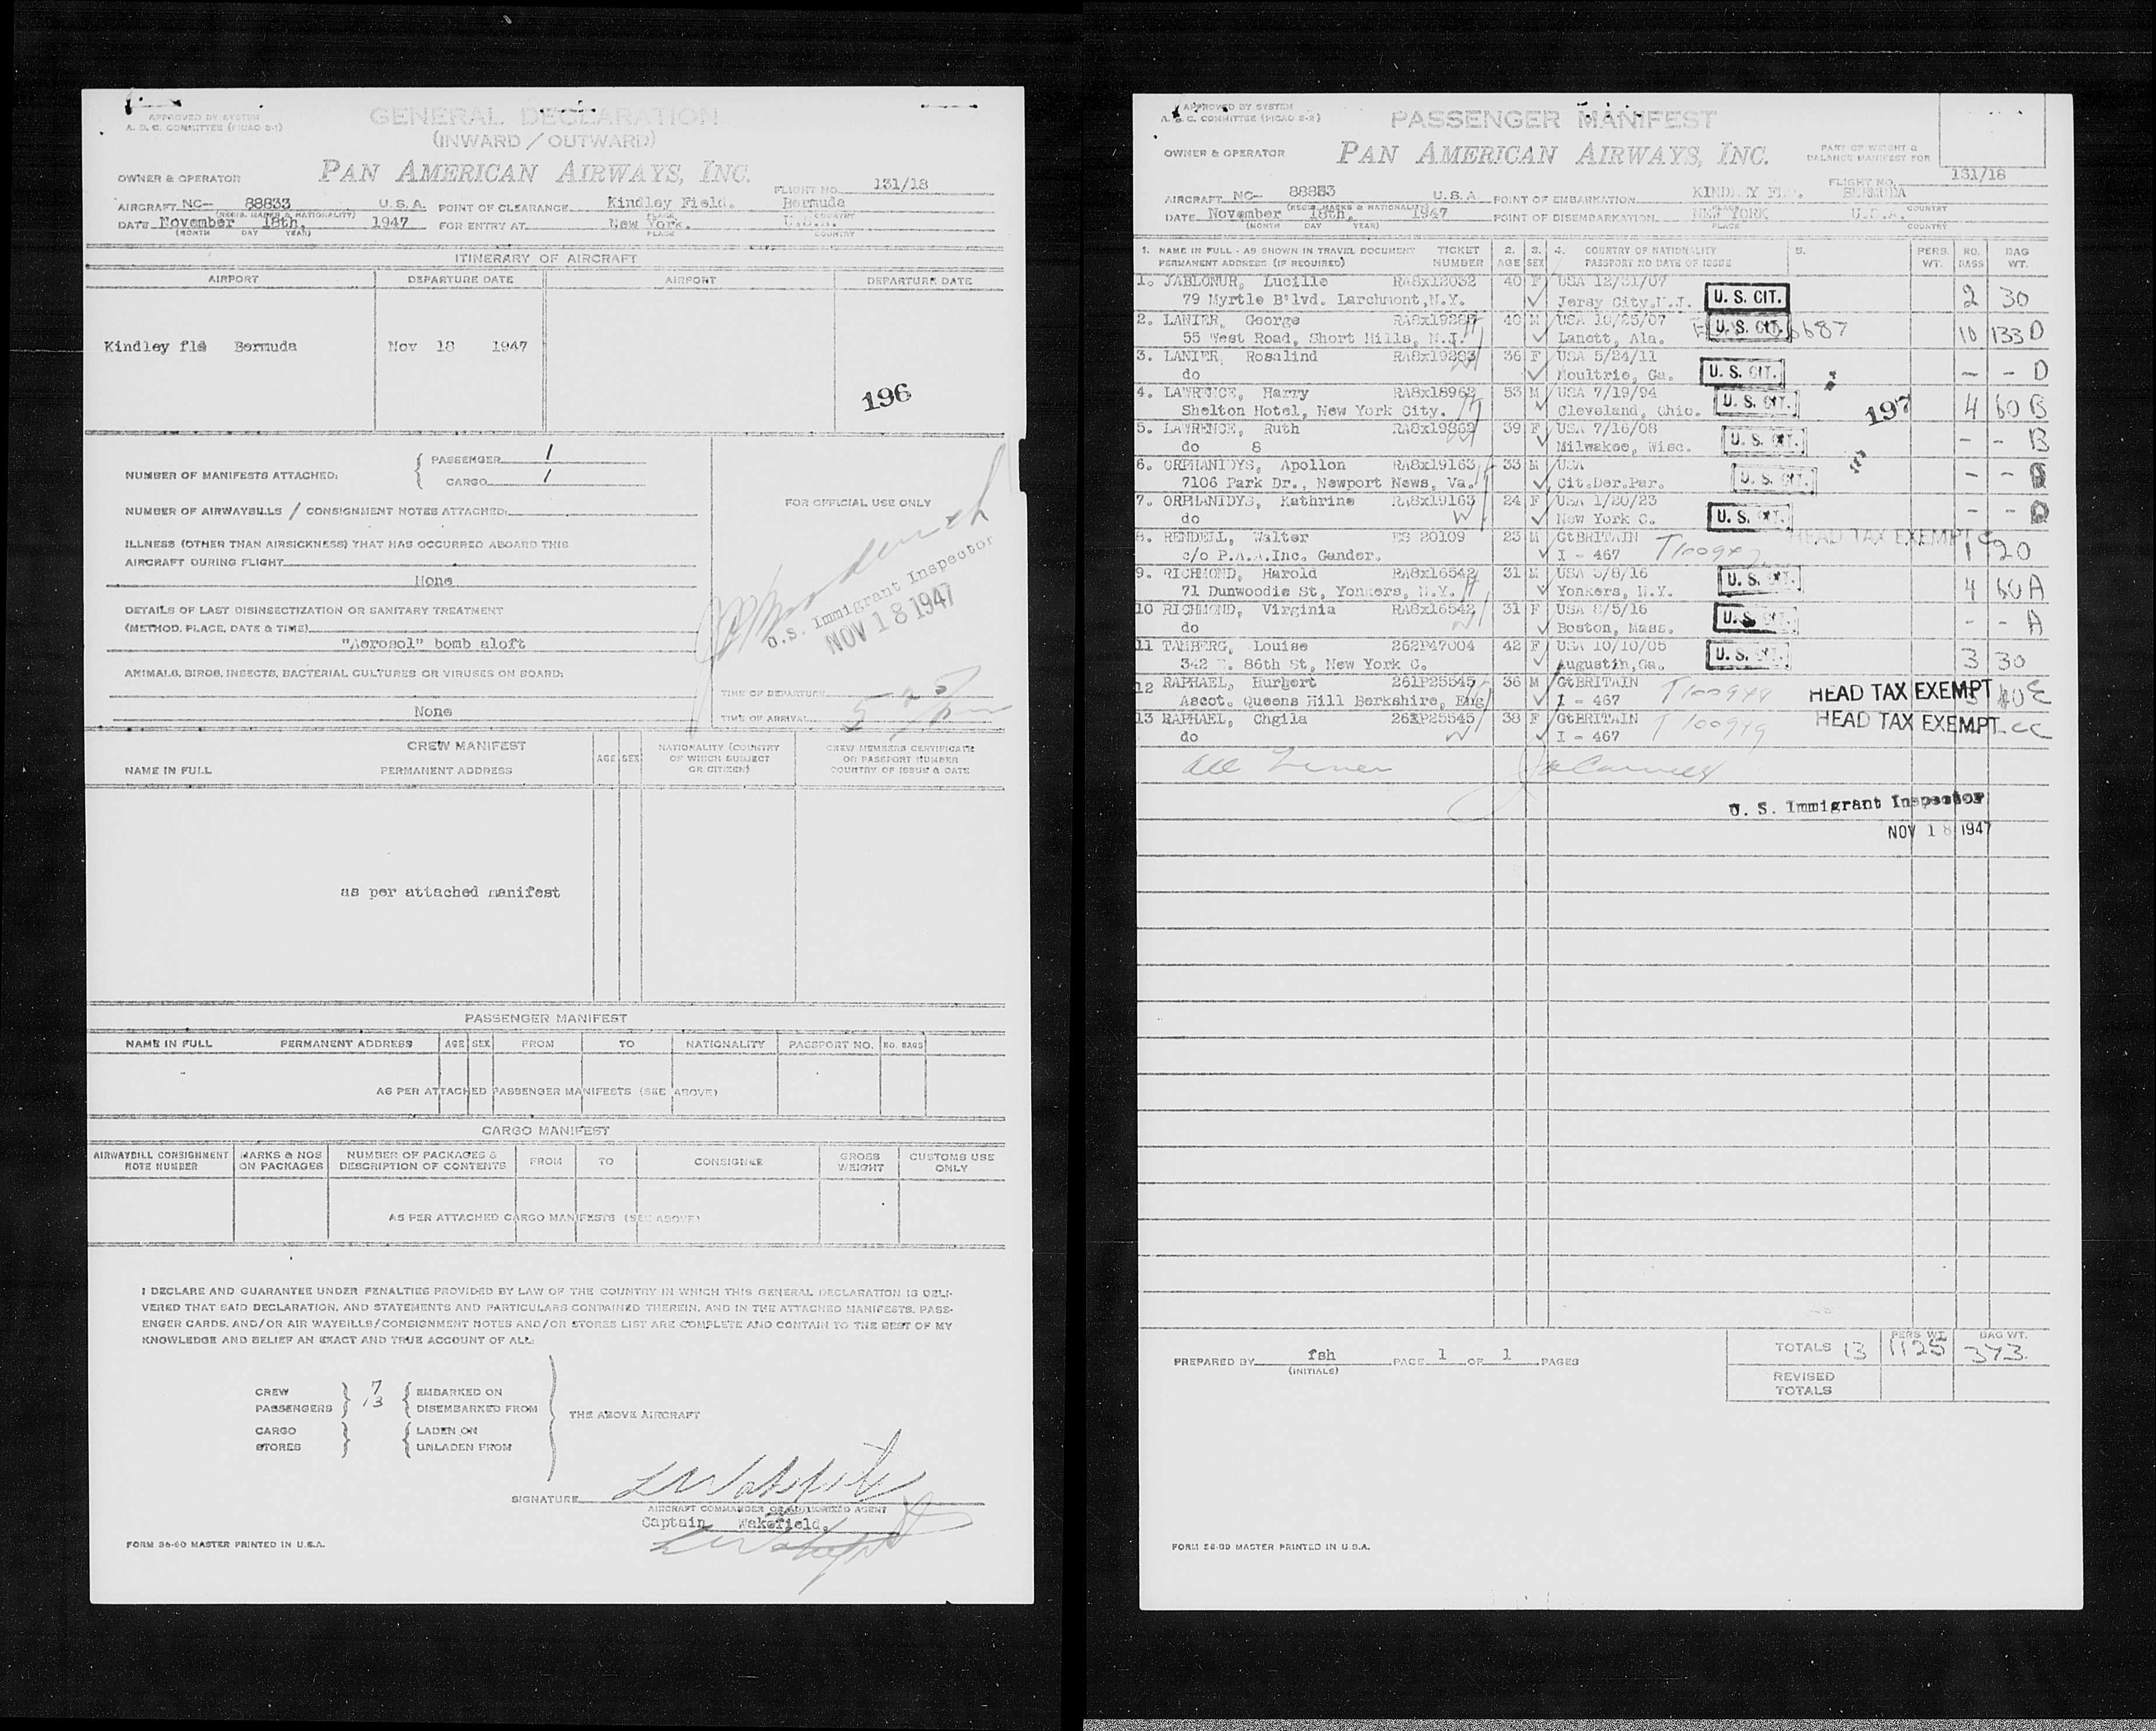 APPROVED BY SYSTEM
A. D. C. COMMITTEE (PICAO 2-1)
GENERAL DECLARATION
(INWARD / OUTWARD)
OWNER & OPERATOR
PAN AMERICAN AIRWAYS, INC.
FLIGHT NO. 131/18
AIRCRAFT NC- 88833 U.S.A. POINT OF CLEARANCE Kindley Field. Bermuda
(REGIS. MARKS & NATIONALITY) PLACE COUNTRY
DATE November 18th, 1947 FOR ENTRY AT New York. U.S.A.
(MONTH DAY YEAR) PLACE COUNTRY
ITINERARY OF AIRCRAFT
AIRPORT DEPARTURE DATE AIRPORT DEPARTURE DATE
Kindley fld Bermuda Nov 18 1947
196
NUMBER OF MANIFESTS ATTACHED: PASSENGER 1
CARGO 1
FOR OFFICIAL USE ONLY
NUMBER OF AIRWAYBILLS / CONSIGNMENT NOTES ATTACHED:
ILLNESS (OTHER THAN AIRSICKNESS) THAT HAS OCCURRED ABOARD THIS
AIRCRAFT DURING FLIGHT
None
U.S. Immigrant Inspector
NOV 18 1947
DETAILS OF LAST DISINSECTIZATION OR SANITARY TREATMENT
(METHOD, PLACE, DATE & TIME)
"Aerosol" bomb aloft
ANIMALS, BIRDS, INSECTS, BACTERIAL CULTURES OR VIRUSES ON BOARD:
None
TIME OF DEPARTURE
TIME OF ARRIVAL
CREW MANIFEST
NAME IN FULL PERMANENT ADDRESS AGE SEX NATIONALITY (COUNTRY OF WHICH SUBJECT OR CITIZEN) CREW MEMBERS CERTIFICATE OR PASSPORT NUMBER COUNTRY OF ISSUE & DATE
as per attached manifest
PASSENGER MANIFEST
NAME IN FULL PERMANENT ADDRESS AGE SEX FROM TO NATIONALITY PASSPORT NO. NO. BAGS
AS PER ATTACHED PASSENGER MANIFESTS (SEE ABOVE)
CARGO MANIFEST
AIRWAYBILL CONSIGNMENT NOTE NUMBER MARKS & NOS ON PACKAGES NUMBER OF PACKAGES & DESCRIPTION OF CONTENTS FROM TO CONSIGNEE GROSS WEIGHT CUSTOMS USE ONLY
AS PER ATTACHED CARGO MANIFESTS (SEE ABOVE)
I DECLARE AND GUARANTEE UNDER PENALTIES PROVIDED BY LAW OF THE COUNTRY IN WHICH THIS GENERAL DECLARATION IS DELI-
VERED THAT SAID DECLARATION, AND STATEMENTS AND PARTICULARS CONTAINED THEREIN, AND IN THE ATTACHED MANIFESTS, PASS-
ENGER CARDS, AND/OR AIR WAYBILLS/CONSIGNMENT NOTES AND/OR STORES LIST ARE COMPLETE AND CONTAIN TO THE BEST OF MY
KNOWLEDGE AND BELIEF AN EXACT AND TRUE ACCOUNT OF ALL:
CREW 7 EMBARKED ON
PASSENGERS 13 DISEMBARKED FROM
THE ABOVE AIRCRAFT
CARGO LADEN ON
STORES UNLADEN FROM
SIGNATURE
AIRCRAFT COMMANDER OR AUTHORIZED AGENT
Captain Wakefield,
FORM 86-80 MASTER PRINTED IN U.S.A.
APPROVED BY SYSTEM
A. D. C. COMMITTEE (PICAO 2-2)
PASSENGER MANIFEST
OWNER & OPERATOR
PAN AMERICAN AIRWAYS, INC.
PART OF WEIGHT & BALANCE MANIFEST FOR
FLIGHT NO. 131/18
AIRCRAFT NC- 88833 U.S.A. POINT OF EMBARKATION KINDLEY BERMUDA
(REGIS. MARKS & NATIONALITY) PLACE COUNTRY
DATE November 18th, 1947 POINT OF DISEMBARKATION NEW YORK U.S.A.
(MONTH DAY YEAR) PLACE COUNTRY
1. NAME IN FULL - AS SHOWN IN TRAVEL DOCUMENT TICKET 2. 3. 4. COUNTRY OF NATIONALITY 5. PERS. NO. BAG
PERMANENT ADDRESS (IF REQUIRED) NUMBER AGE SEX PASSPORT NO DATE OF ISSUE WT. BAGS WT.
1. JABLONUR, Lucille RA8x12032 40 F USA 12/31/07
79 Myrtle B'lvd. Larchmont, N.Y. Jersy City. N.J. U. S. CIT. 2 30
2. LANIER, George 40 M USA 10/25/07
55 West Road, Short Hills, N.J. Lanett, Ala. U. S. CIT. 10 133 D
3. LANIER, Rosalind RA8x19283 36 F USA 5/24/11
do Moultrie, Ga. U. S. CIT. - - D
4. LAWRENCE, Harry RA8x18962 53 M USA 7/19/94
Shelton Hotel, New York City. Cleveland, Ohio. U. S. CIT. 197 4 60 B
5. LAWRENCE, Ruth 39 F USA 7/16/08
do 8 Milwakee, Wisc. U. S. CIT. - - B
6. ORPHANIDYS, Apollon RA8x19163 33 M USA
7106 Park Dr., Newport News, Va. Cit.Der.Par. U. S. CIT. - -
7. ORPHANIDYS, Kathrine RA8x19163 24 F USA 1/20/23
do New York C. U. S. CIT. - -
8. RENDELL, Walter ES 20109 23 M GtBRITAIN HEAD TAX EXEMPT
c/o P.A.A.Inc, Gander. I - 467 1 20
9. RICHMOND, Harold RA8x16542 31 M USA 3/8/16
71 Dunwoodie St, Yonkers, N.Y. Yonkers, N.Y. U. S. CIT. 4 60 A
10 RICHMOND, Virginia RA8x16542 31 F USA 8/5/16
do Boston, Mass. U. S. CIT. - - A
11 TAMBERG, Louise 262P47004 42 F USA 10/10/05
342 E. 86th St, New York C. Augustin,Ga. U. S. CIT. 3 30
12 RAPHAEL, Hurbert 261P25545 36 M GtBRITAIN T100944 HEAD TAX EXEMPT
Ascot. Queens Hill Berkshire, Eng I - 467
13 RAPHAEL, Chgila 38 F GtBRITAIN T100949 HEAD TAX EXEMPT
do I - 467
U. S. Immigrant Inspector
NOV 18 1947
PREPARED BY fsh PAGE 1 OF 1 PAGES
(INITIALS)
TOTALS 13 PERS WT. 1125 BAG WT. 373
REVISED TOTALS
FORM 86-80 MASTER PRINTED IN U.S.A.